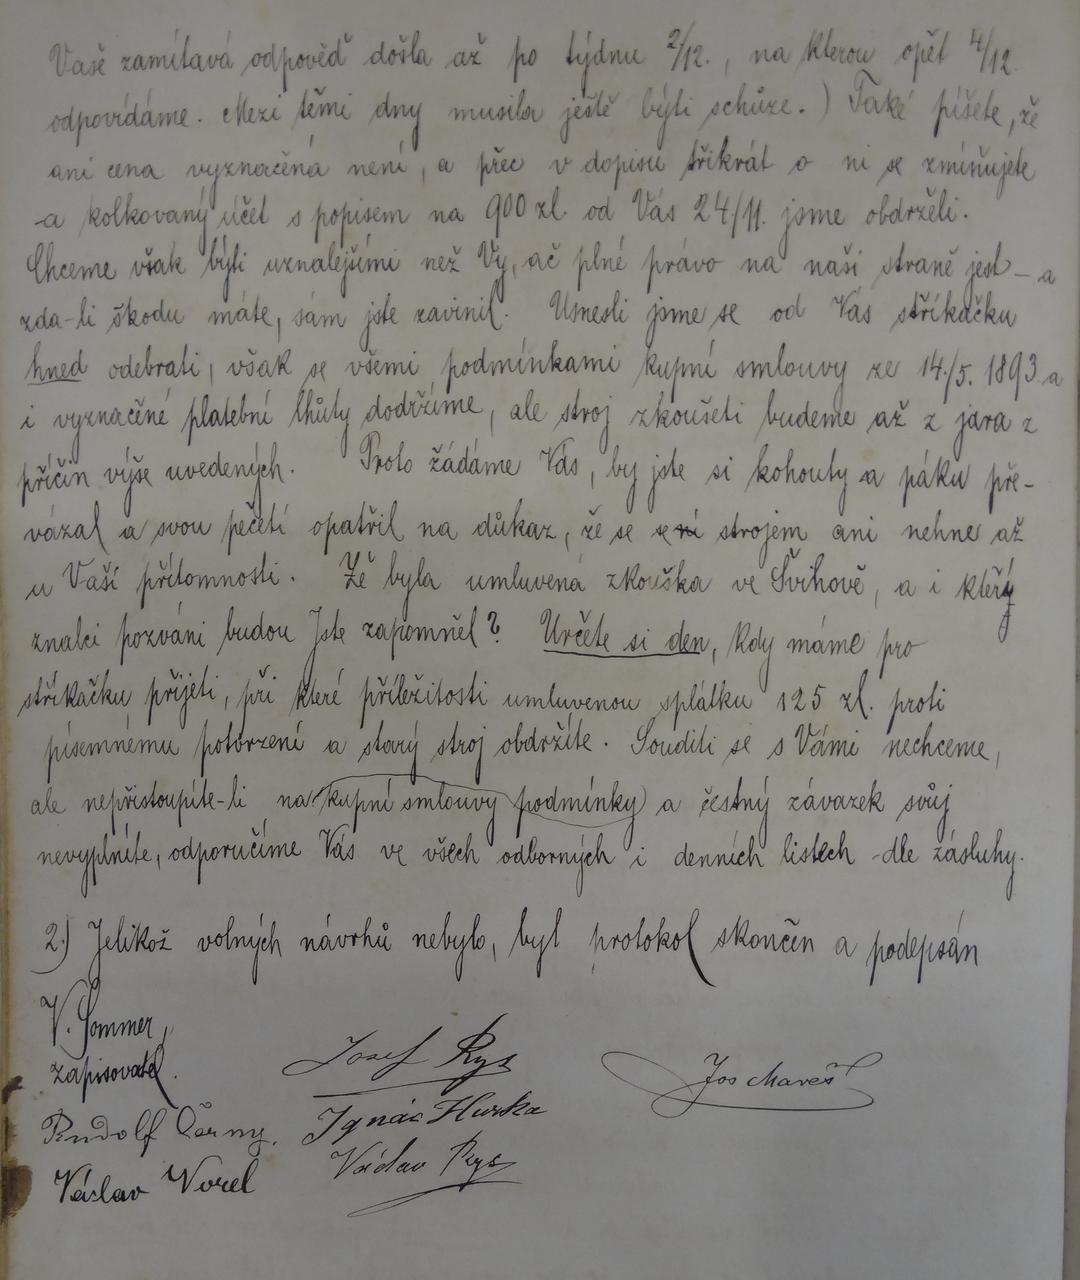 Vaše zamítavá odpověď došla až po týdnu 2/12., na kterou opět 4/12.
odpovídáme. Mezi těmi dny musila ještě býti schůze.) Také píšete, že
ani cena vyznačená není, a přec v dopisu třikrát o ni se zmiňujete
-a kolkovaný účet s popisem na 900 zl. od Vás 24/11. jsme obdrželi.
Chceme však býti uznalejšími než Vy, ač plné právo na naší straně jest - a
zda-li škodu máte, sám jste zavinil. Usnesli jsme se od Vás stříkačku
hned odebrati, však se všemi podmínkami kupní smlouvy ze 14./5. 1893 a
i vyznačené platební lhůty dodržíme, ale stroj zkoušeti budeme až z jara z
příčin výše uvedených. Proto žádáme Vás, by jste si kohouty a páku pře-
vázal a svou pečetí opatřil na důkaz, že se strojem ani nehne až
u Vaší přítomnosti. Že byla umluvená zkouška ve Švihově, a i kteří
znalci pozváni budou Jste zapomněl? Určete si den, kdy máme pro
stříkačku přijeti, při které příležitosti umluvenou splátku 125 zl. proti
písemnému potvrzení a starý stroj obdržíte. Souditi se s Vámi nechceme,
ale nepřistoupíte-li na kupní smlouvy podmínky a čestný závazek svůj
nevyplníte, odporučíme Vás ve všech odborných i denních listech -dle zásluhy.
2.) Jelikož volných návrhů nebylo, byl protokol skončen a podepsán
V. Sommer,
zapisovatel.
Josef Rys
Jos Mareš
Rudolf Černý.
Ignác Hurka
Václav Vorel
Václav Rys